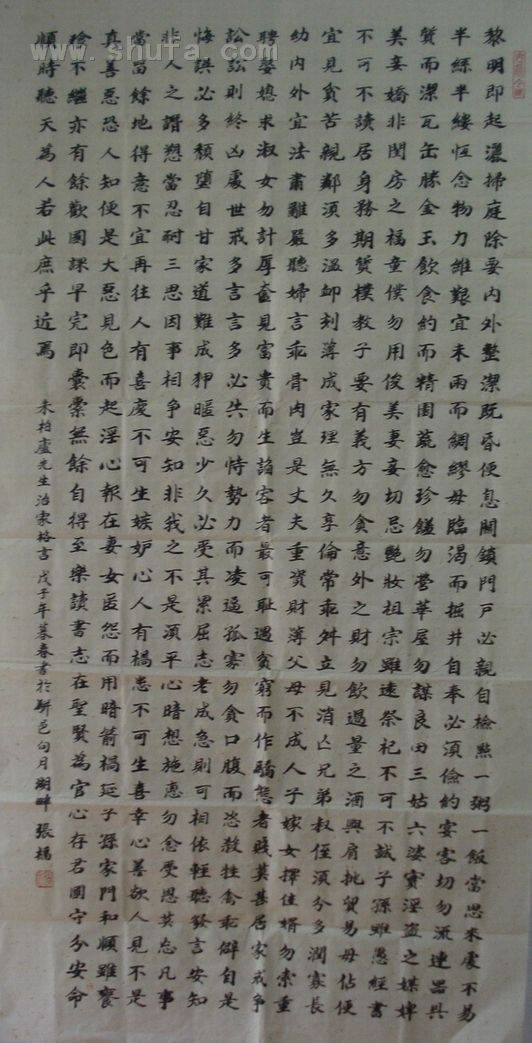 www.shufa.com
黎明即起灑掃庭除要內外整潔既昏便息關鎖門戶必親自檢點一粥一飯當思來處不易
半絲半縷恒念物力維艱宜未雨而綢繆毋臨渴而掘井自奉必須儉約宴客切勿流連器具
質而潔瓦缶勝金玉飲食約而精園蔬愈珍饈勿營華屋勿謀良田三姑六婆實淫盜之媒婢
美妾嬌非閨房之福童僕勿用俊美妻妾切忌艷妝祖宗雖遠祭祀不可不誠子孫雖愚經書
不可不讀居身務期質樸教子要有義方勿貪意外之財勿飲過量之酒與肩挑貿易毋佔便
宜見貧苦親鄰須多溫卹刻薄成家理無久享倫常乖舛立見消亡兄弟叔侄須分多潤寡長
幼內外宜法肅辭嚴聽婦言乖骨肉豈是丈夫重資財薄父母不成人子嫁女擇佳婿勿索重
聘娶媳求淑女勿計厚奩見富貴而生諂容者最可恥遇貧窮而作驕態者賤莫甚居家戒爭
訟訟則終凶處世戒多言言多必失勿恃勢力而凌逼孤寡勿貪口腹而恣殺牲禽乖僻自是
悔誤必多頹墮自甘家道難成狎暱惡少久必受其累屈志老成急則可相依輕聽發言安知
非人之譖愬當忍耐三思因事相爭安知非我之不是須平心暗想施惠勿念受恩莫忘凡事
當留餘地得意不宜再往人有喜慶不可生嫉妒心人有禍患不可生喜幸心善欲人見不是
真善惡恐人知便是大惡見色而起淫心報在妻女匿怨而用暗箭禍延子孫家門和順雖饔
飧不繼亦有餘歡國課早完即囊橐無餘自得至樂讀書志在聖賢為官心存君國守分安命
順時聽天為人若此庶乎近焉
朱柏廬先生治家格言戊子年暮春書於 邑向月湖畔張楊